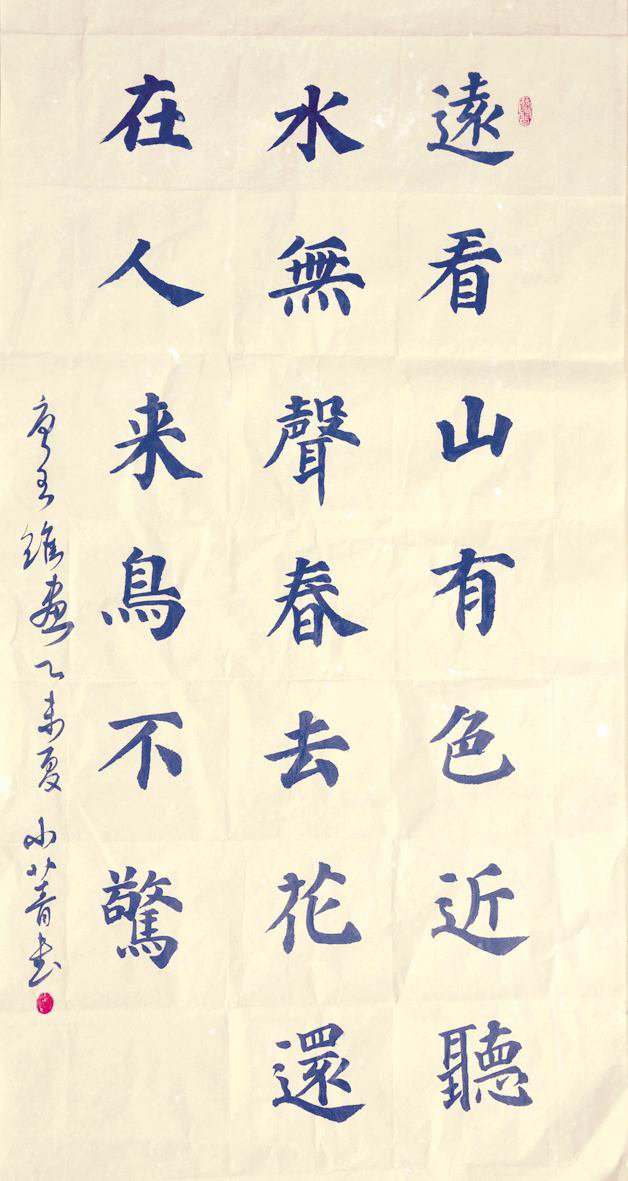 遠看山有色近聽
水無聲春去花還
在人来鳥不驚
唐王維畫乙未夏小草青书